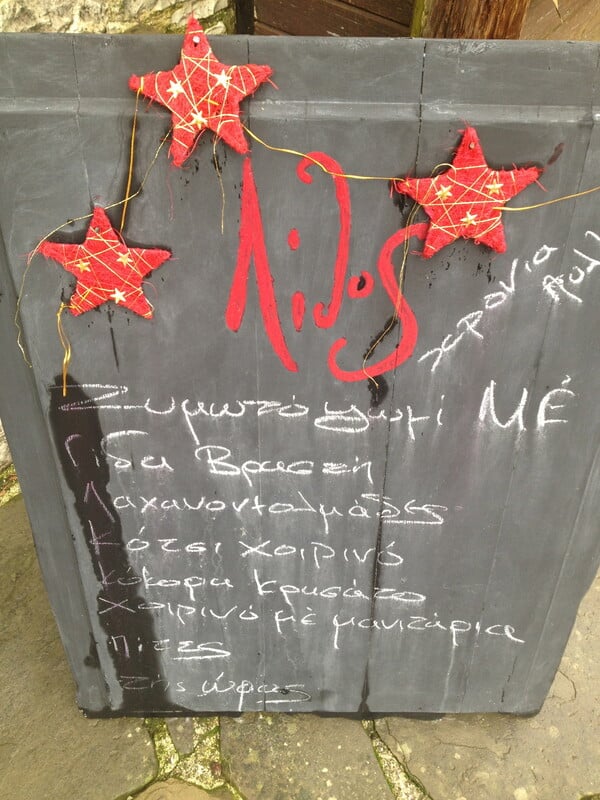 Λιθος
Ζυμωτό ψωμί ΜΈ
Γίδα Βραστή
Λαχανοντολμάδες
Κότσι χοιρινό
Κόκορα Κρασάτο
Χοιρινό μέ μανιτάρια
Πίττες
της ώρας